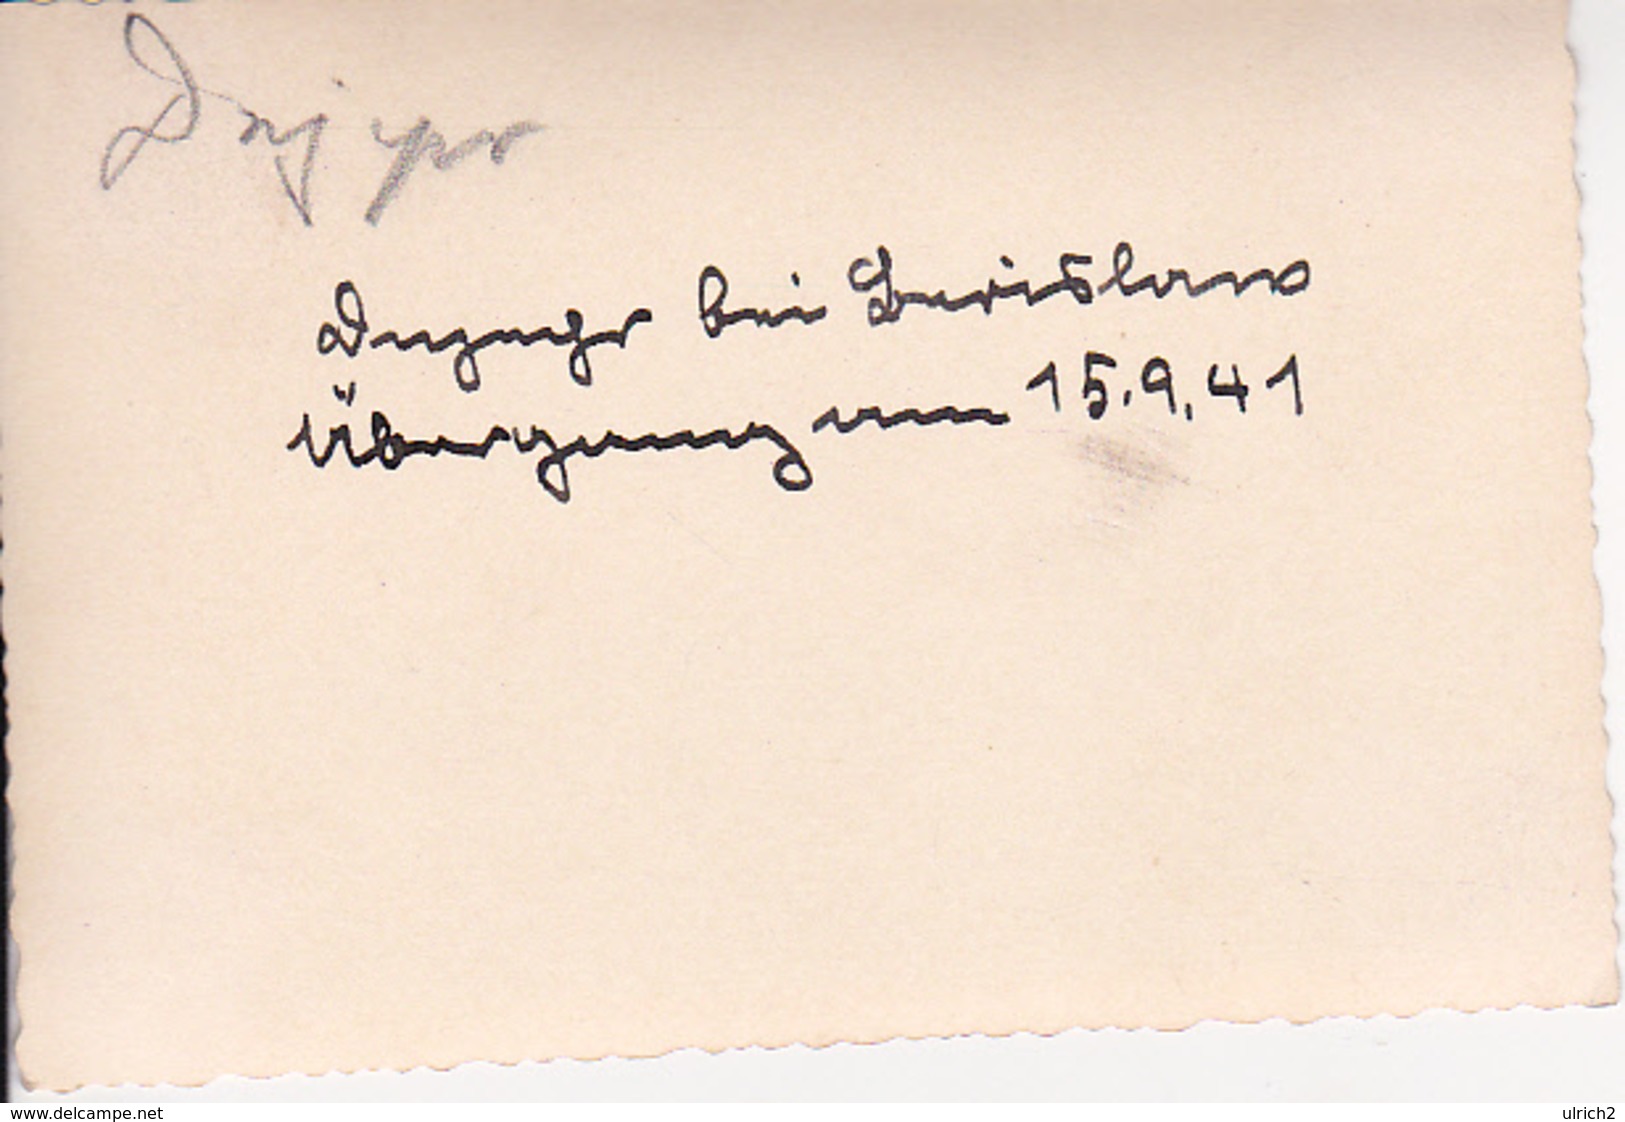 Dnjepr
Dnjepr bei Berislaw
Übergang am 15.9.41
www.delcampe.net
ulrich2